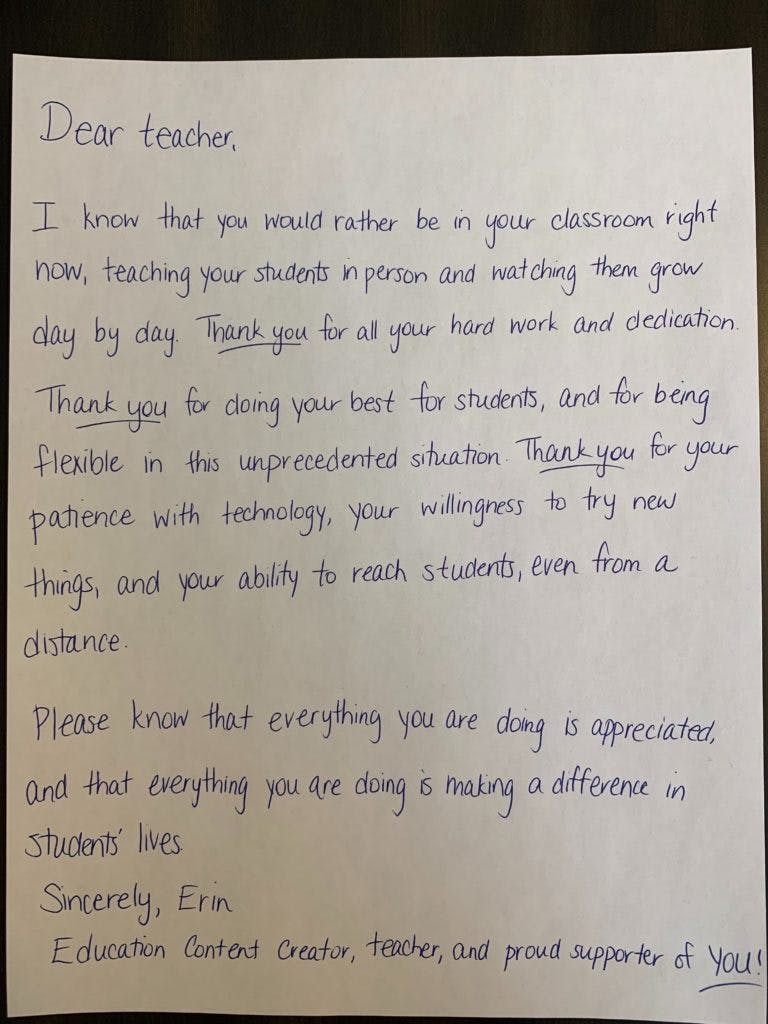 Dear teacher,
I know that you would rather be in your classroom right
now, teaching your students in person and watching them grow
day by day. Thank you for all your hard work and dedication.
Thank you for doing your best for students, and for being
flexible in this unprecedented situation. Thank you for your
patience with technology, your willingness to try new
things, and your ability to reach students, even from a
distance.
Please know that everything you are doing is appreciated,
and that everything you are doing is making a difference in
students' lives.
Sincerely, Erin
Education Content Creator, teacher, and proud supporter of YOU!